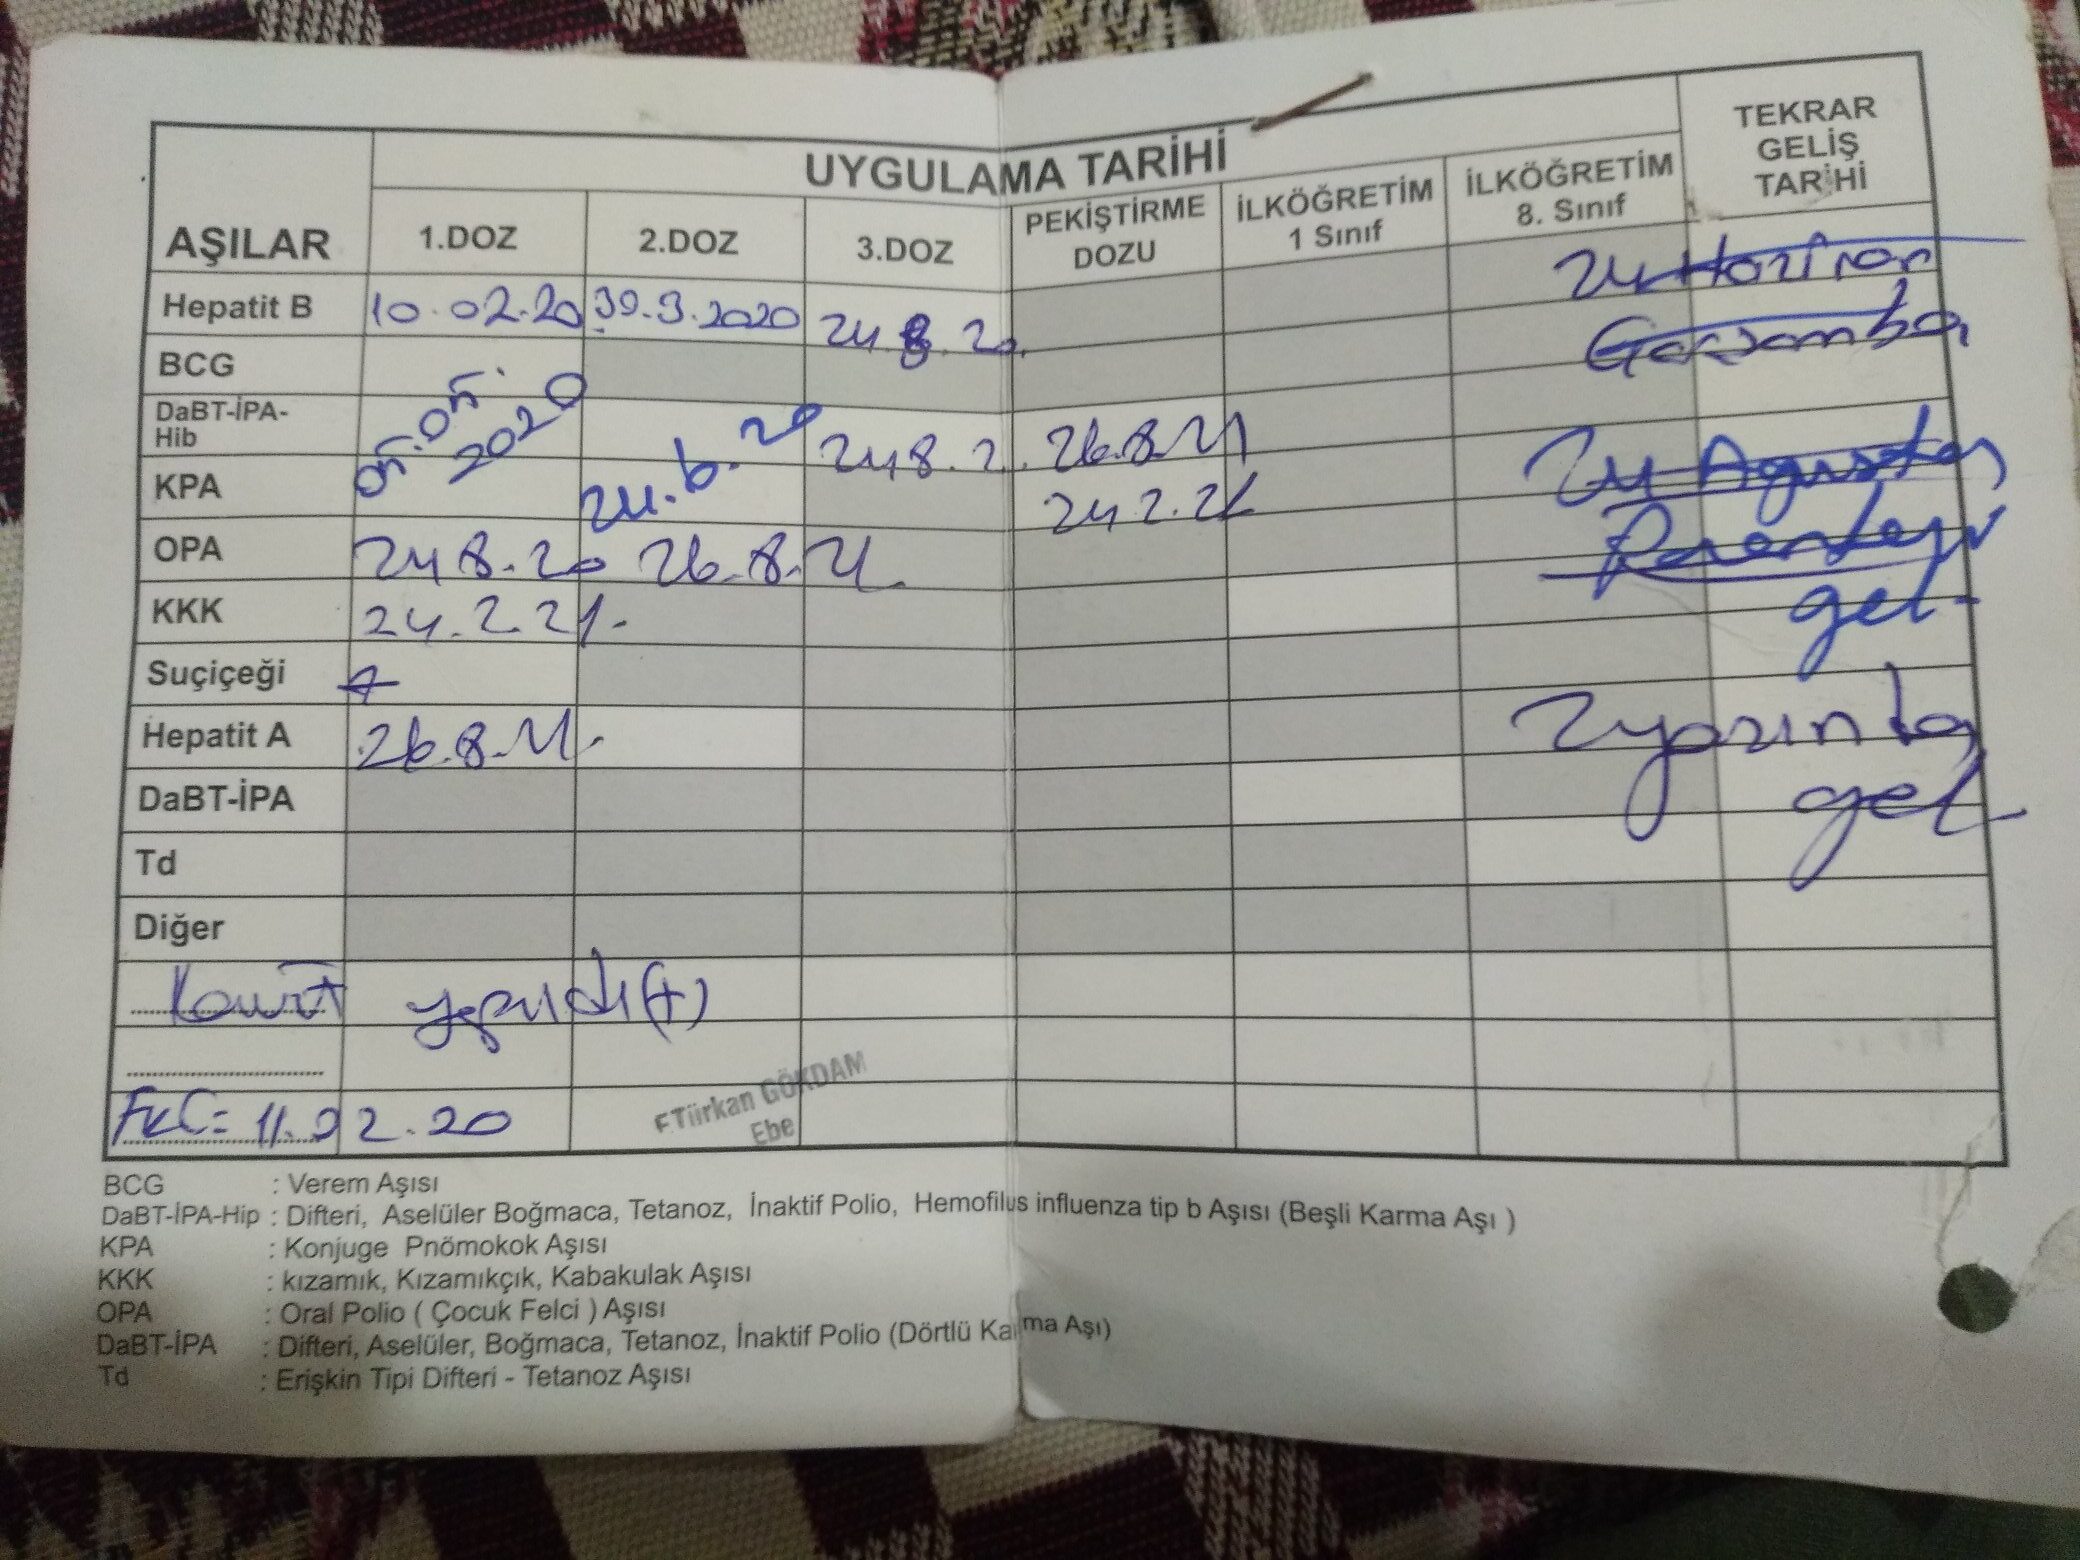 UYGULAMA TARİHİ
AŞILAR 1.DOZ 2.DOZ 3.DOZ PEKİŞTİRME DOZU İLKÖĞRETİM 1 Sınıf İLKÖĞRETİM 8. Sınıf TEKRAR GELİŞ TARİHİ
Hepatit B 10.02.20 2020 24 8.20. 24 Haziran
BCG Çarşamba
DaBT-İPA-Hib 05.05.2020 24.6.20 24 8.2. 26.8.21 24 Ağustos
KPA 24 2.21 Pazartesi
OPA 24 8.20 26.8.21. gel-
KKK 24.2.21.
Suçiçeği +
Hepatit A 26.8.21. 2 yaşında
DaBT-İPA gel
Td
Diğer
yapıldı (+)
FKC= 11.02.20
F.Türkan GÖKDAM
Ebe
BCG : Verem Aşısı
DaBT-İPA-Hip : Difteri, Aselüler Boğmaca, Tetanoz, İnaktif Polio, Hemofilus influenza tip b Aşısı (Beşli Karma Aşı )
KPA : Konjuge Pnömokok Aşısı
KKK : kızamık, Kızamıkçık, Kabakulak Aşısı
OPA : Oral Polio ( Çocuk Felci ) Aşısı
DaBT-İPA : Difteri, Aselüler, Boğmaca, Tetanoz, İnaktif Polio (Dörtlü Karma Aşı)
Td : Erişkin Tipi Difteri - Tetanoz Aşısı